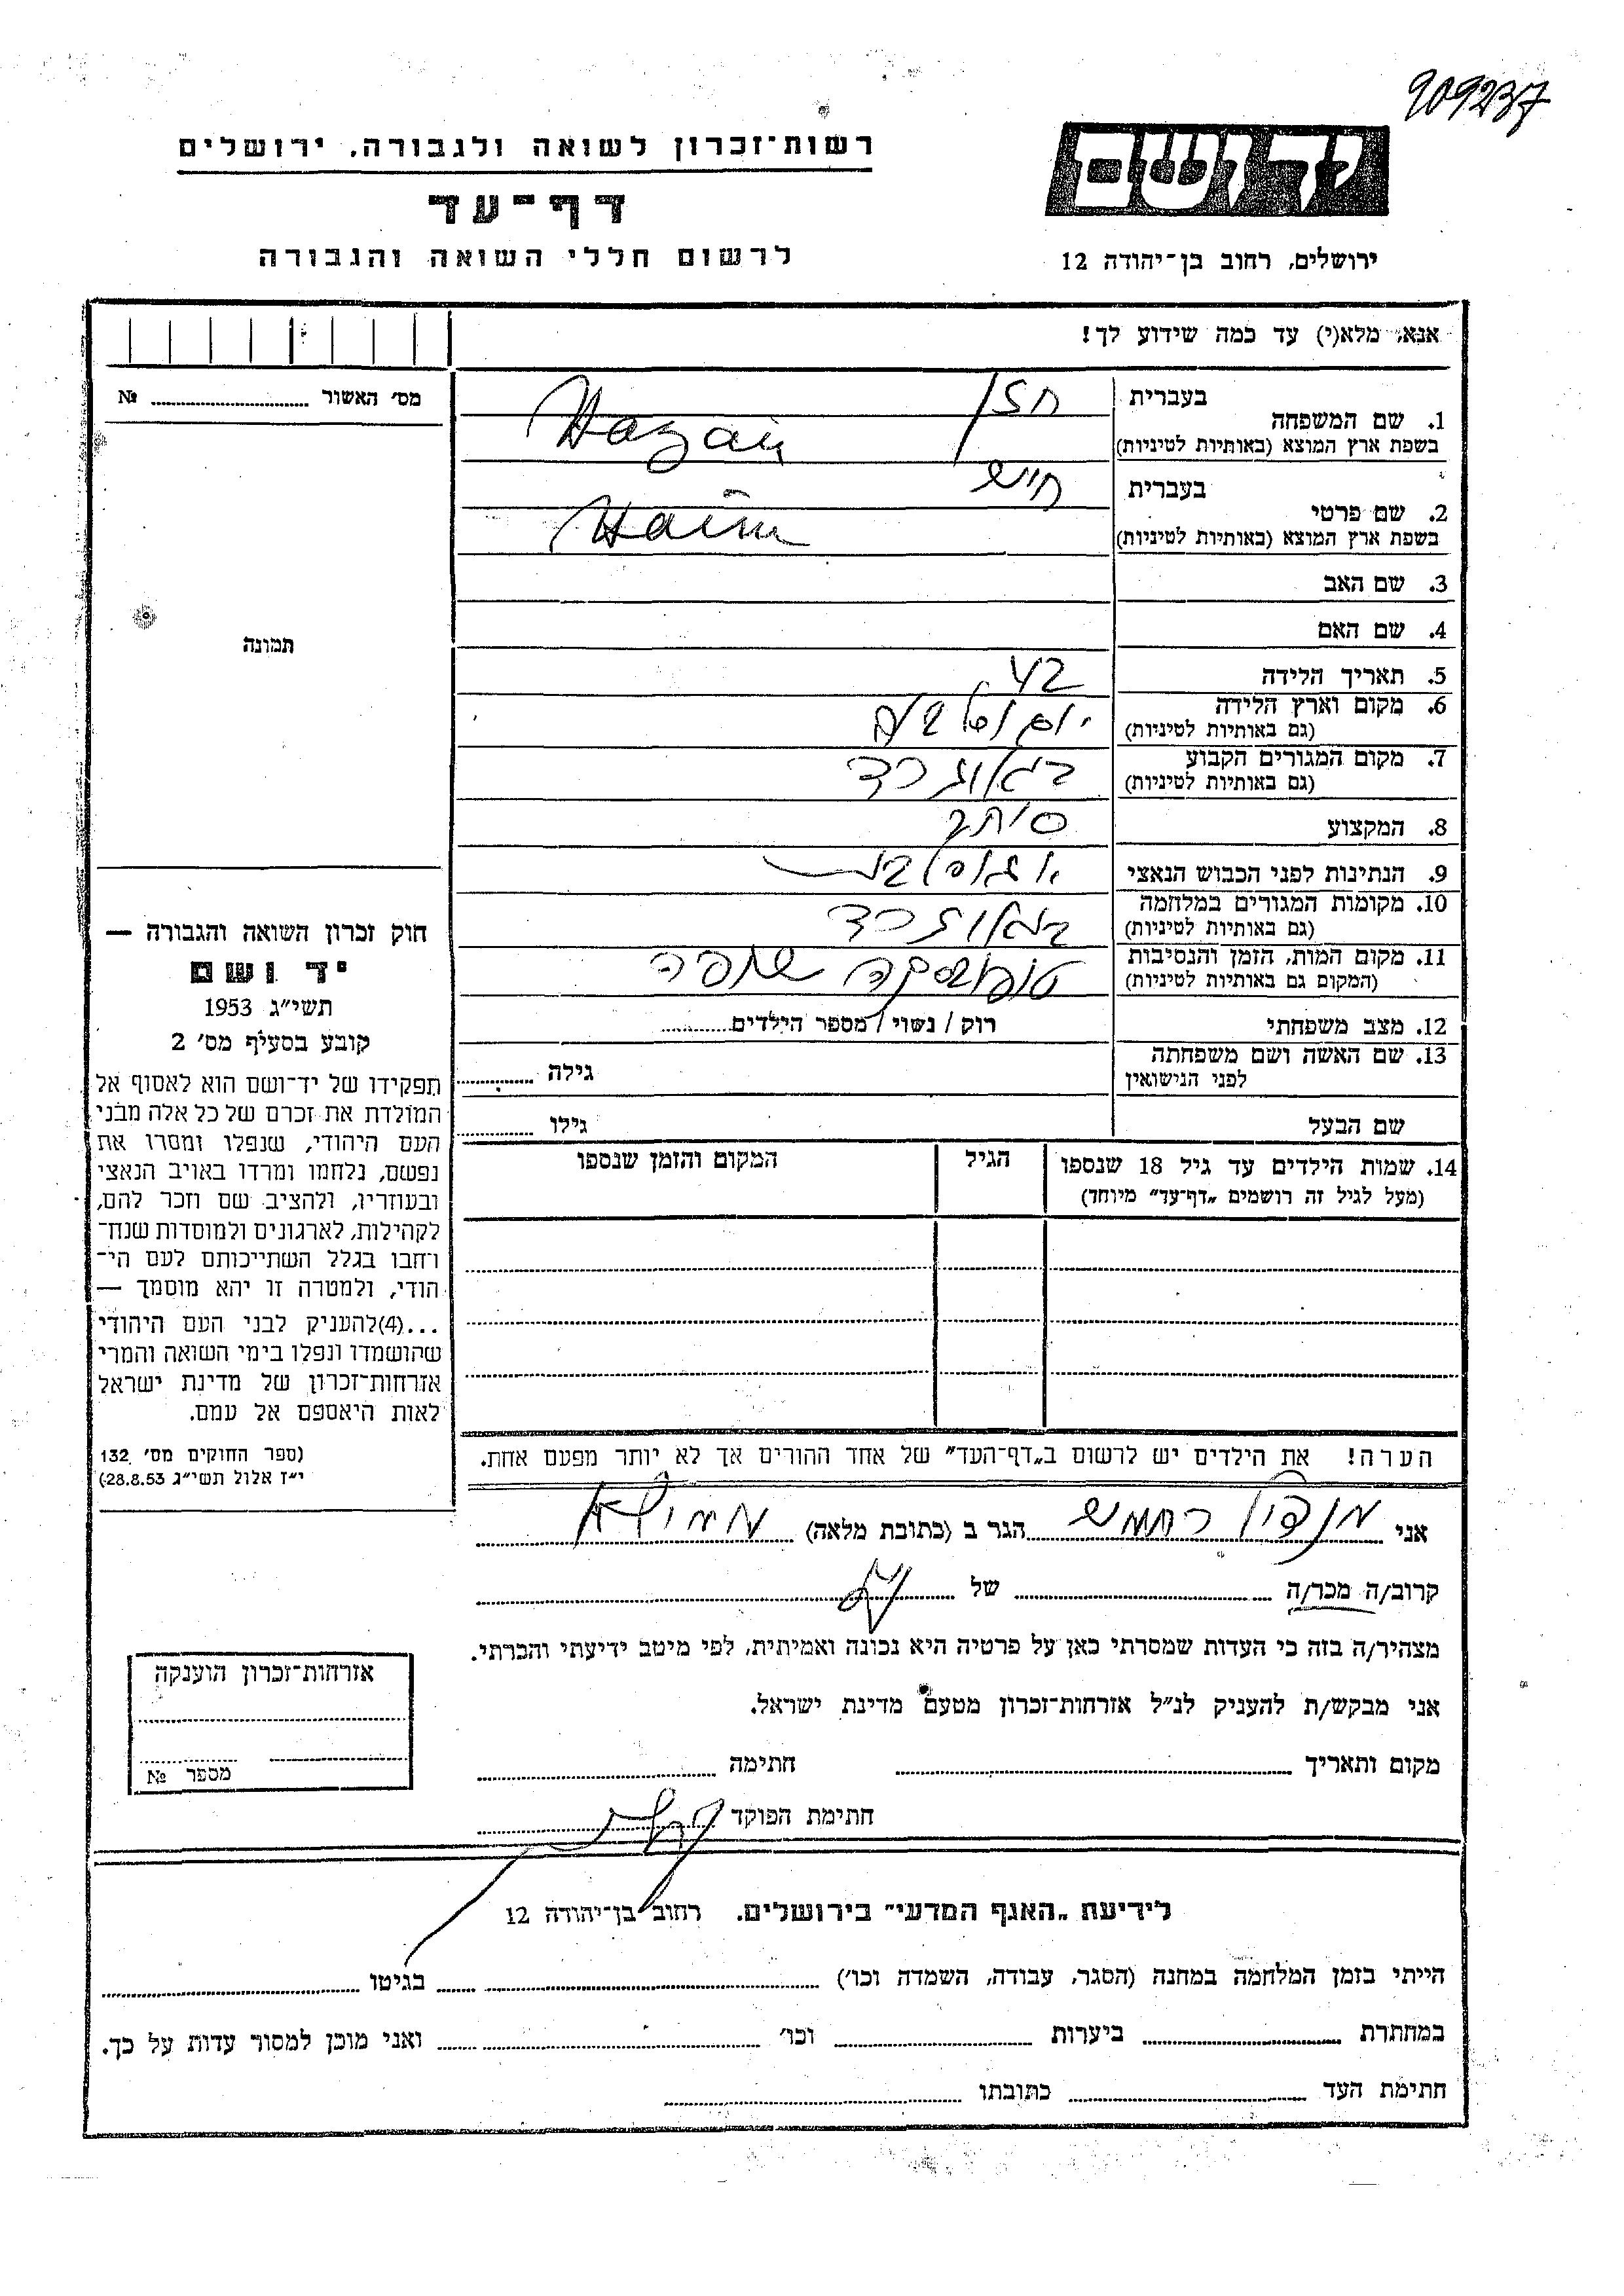 909237
יד ושם
רשות־זכרון לשואה ולגבורה, ירושלים
דף־עד
לרשום חללי השואה והגבורה
ירושלים, רחוב בן־יהודה 12
אנא, מלא(י) עד כמה שידוע לך!
מס׳ האשור № 
1. שם המשפחה
בעברית חזן
בשפת ארץ המוצא (באותיות לטיניות) Hazan
2. שם פרטי
בעברית חיים
בשפת ארץ המוצא (באותיות לטיניות) Haim
3. שם האב
4. שם האם
תמונה
5. תאריך הלידה 42
6. מקום וארץ הלידה
(גם באותיות לטיניות)
7. מקום המגורים הקבוע בלגרד
(גם באותיות לטיניות)
8. המקצוע סוחר
9. הנתינות לפני הכבוש הנאצי
10. מקומות המגורים במלחמה בלגרד
(גם באותיות לטיניות)
11. מקום המות, הזמן והנסיבות טופובסקה שופה
(המקום גם באותיות לטיניות)
12. מצב משפחתי רוק / נשוי / מספר הילדים
13. שם האשה ושם משפחתה
לפני הנישואין גילה
שם הבעל גילו
14. שמות הילדים עד גיל 18 שנספו הגיל המקום והזמן שנספו
(מעל לגיל זה רושמים „דף־עד״ מיוחד)
חוק זכרון השואה והגבורה —
יד ושם
תשי״ג 1953
קובע בסעיף מס׳ 2
תפקידו של יד־ושם הוא לאסוף אל
המולדת את זכרם של כל אלה מבני
העם היהודי, שנפלו ומסרו את
נפשם, נלחמו ומרדו באויב הנאצי
ובעוזריו, ולהציב שם וזכר להם,
לקהילות, לארגונים ולמוסדות שנח־
רחבו בגלל השתייכותם לעם הי־
הודי, ולמטרה זו יהא מוסמך —
...(4)להעניק לבני העם היהודי
שהושמדו ונפלו בימי השואה והמרי
אזרחות־זכרון של מדינת ישראל
לאות היאספם אל עמם.
(ספר החוקים מס׳ 132,
י״ז אלול תשי״ג 28.8.53)
הערה! את הילדים יש לרשום ב„דף־העד״ של אחד ההורים אך לא יותר מפעם אחת.
אני הגר ב (כתובת מלאה)
קרוב/ה מכר/ה של
מצהיר/ה בזה כי העדות שמסרתי כאן על פרטיה היא נכונה ואמיתית, לפי מיטב ידיעתי והכרתי.
אני מבקש/ת להעניק לנ״ל אזרחות־זכרון מטעם מדינת ישראל.
מקום ותאריך חתימה
חתימת הפוקד
אזרחות־זכרון הוענקה
מספר №
לידיעת „האגף המדעי״ בירושלים. רחוב בן־יהודה 12
הייתי בזמן המלחמה במחנה (הסגר, עבודה, השמדה וכו׳) בגיטו
במחתרת ביערות וכו׳ ואני מוכן למסור עדות על כך.
חתימת העד כתובתו